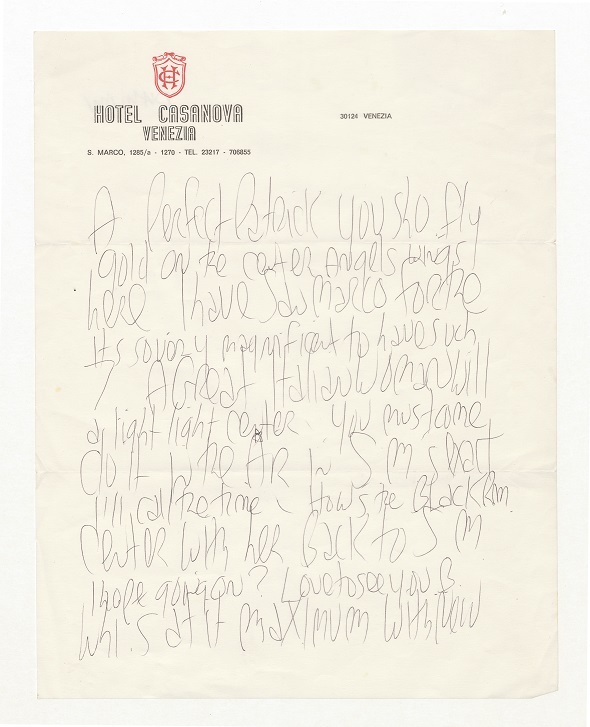 HOTEL CASANOVA
VENEZIA
30124 VENEZIA
S. MARCO, 1285/a - 1270 - TEL. 23217 - 706855
A Perfect Patrick you sho fly
gold on the center Angels wings
here I have San Marco for the
its so very magnificent to have such
A Great Italian woman will
a light light center. You must come
do it the Air in S M s
call the time - Hows the Black Rm.
Center with her Back to S M
I hope going on? Love to see you B.
at it maximum with New